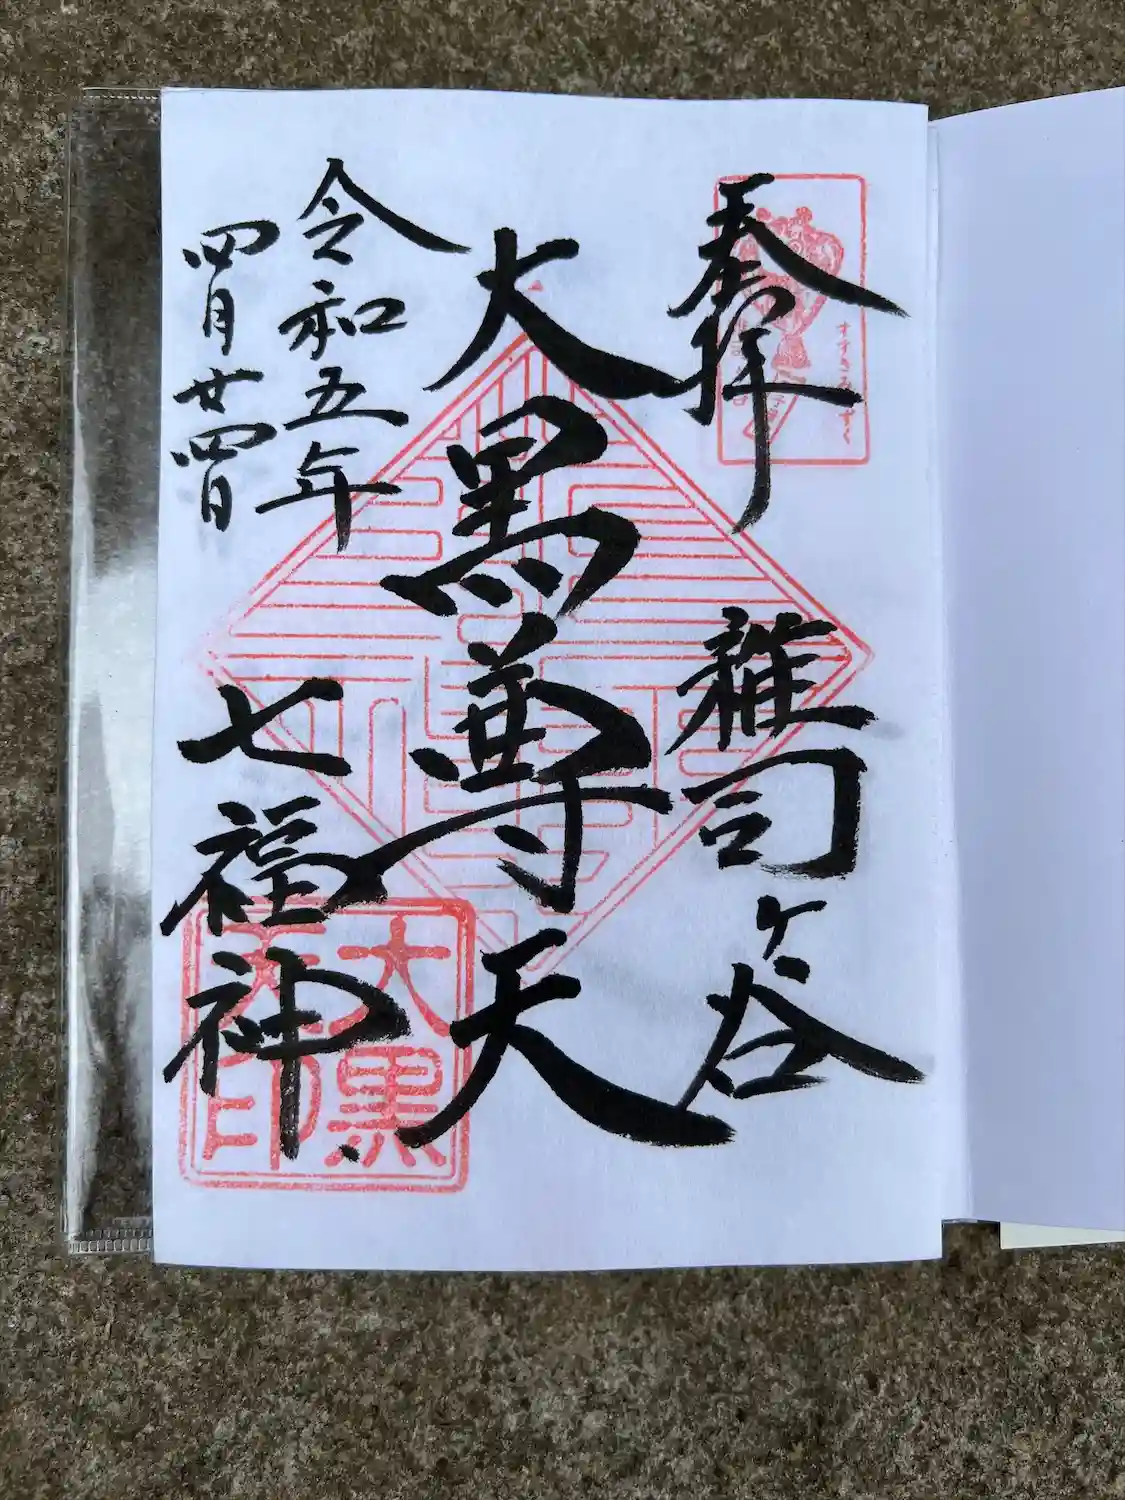 奉拝
すすきみみずく
雑司ケ谷
大黒尊天
令和五年
四月廿四日
七福神
大黒
天印